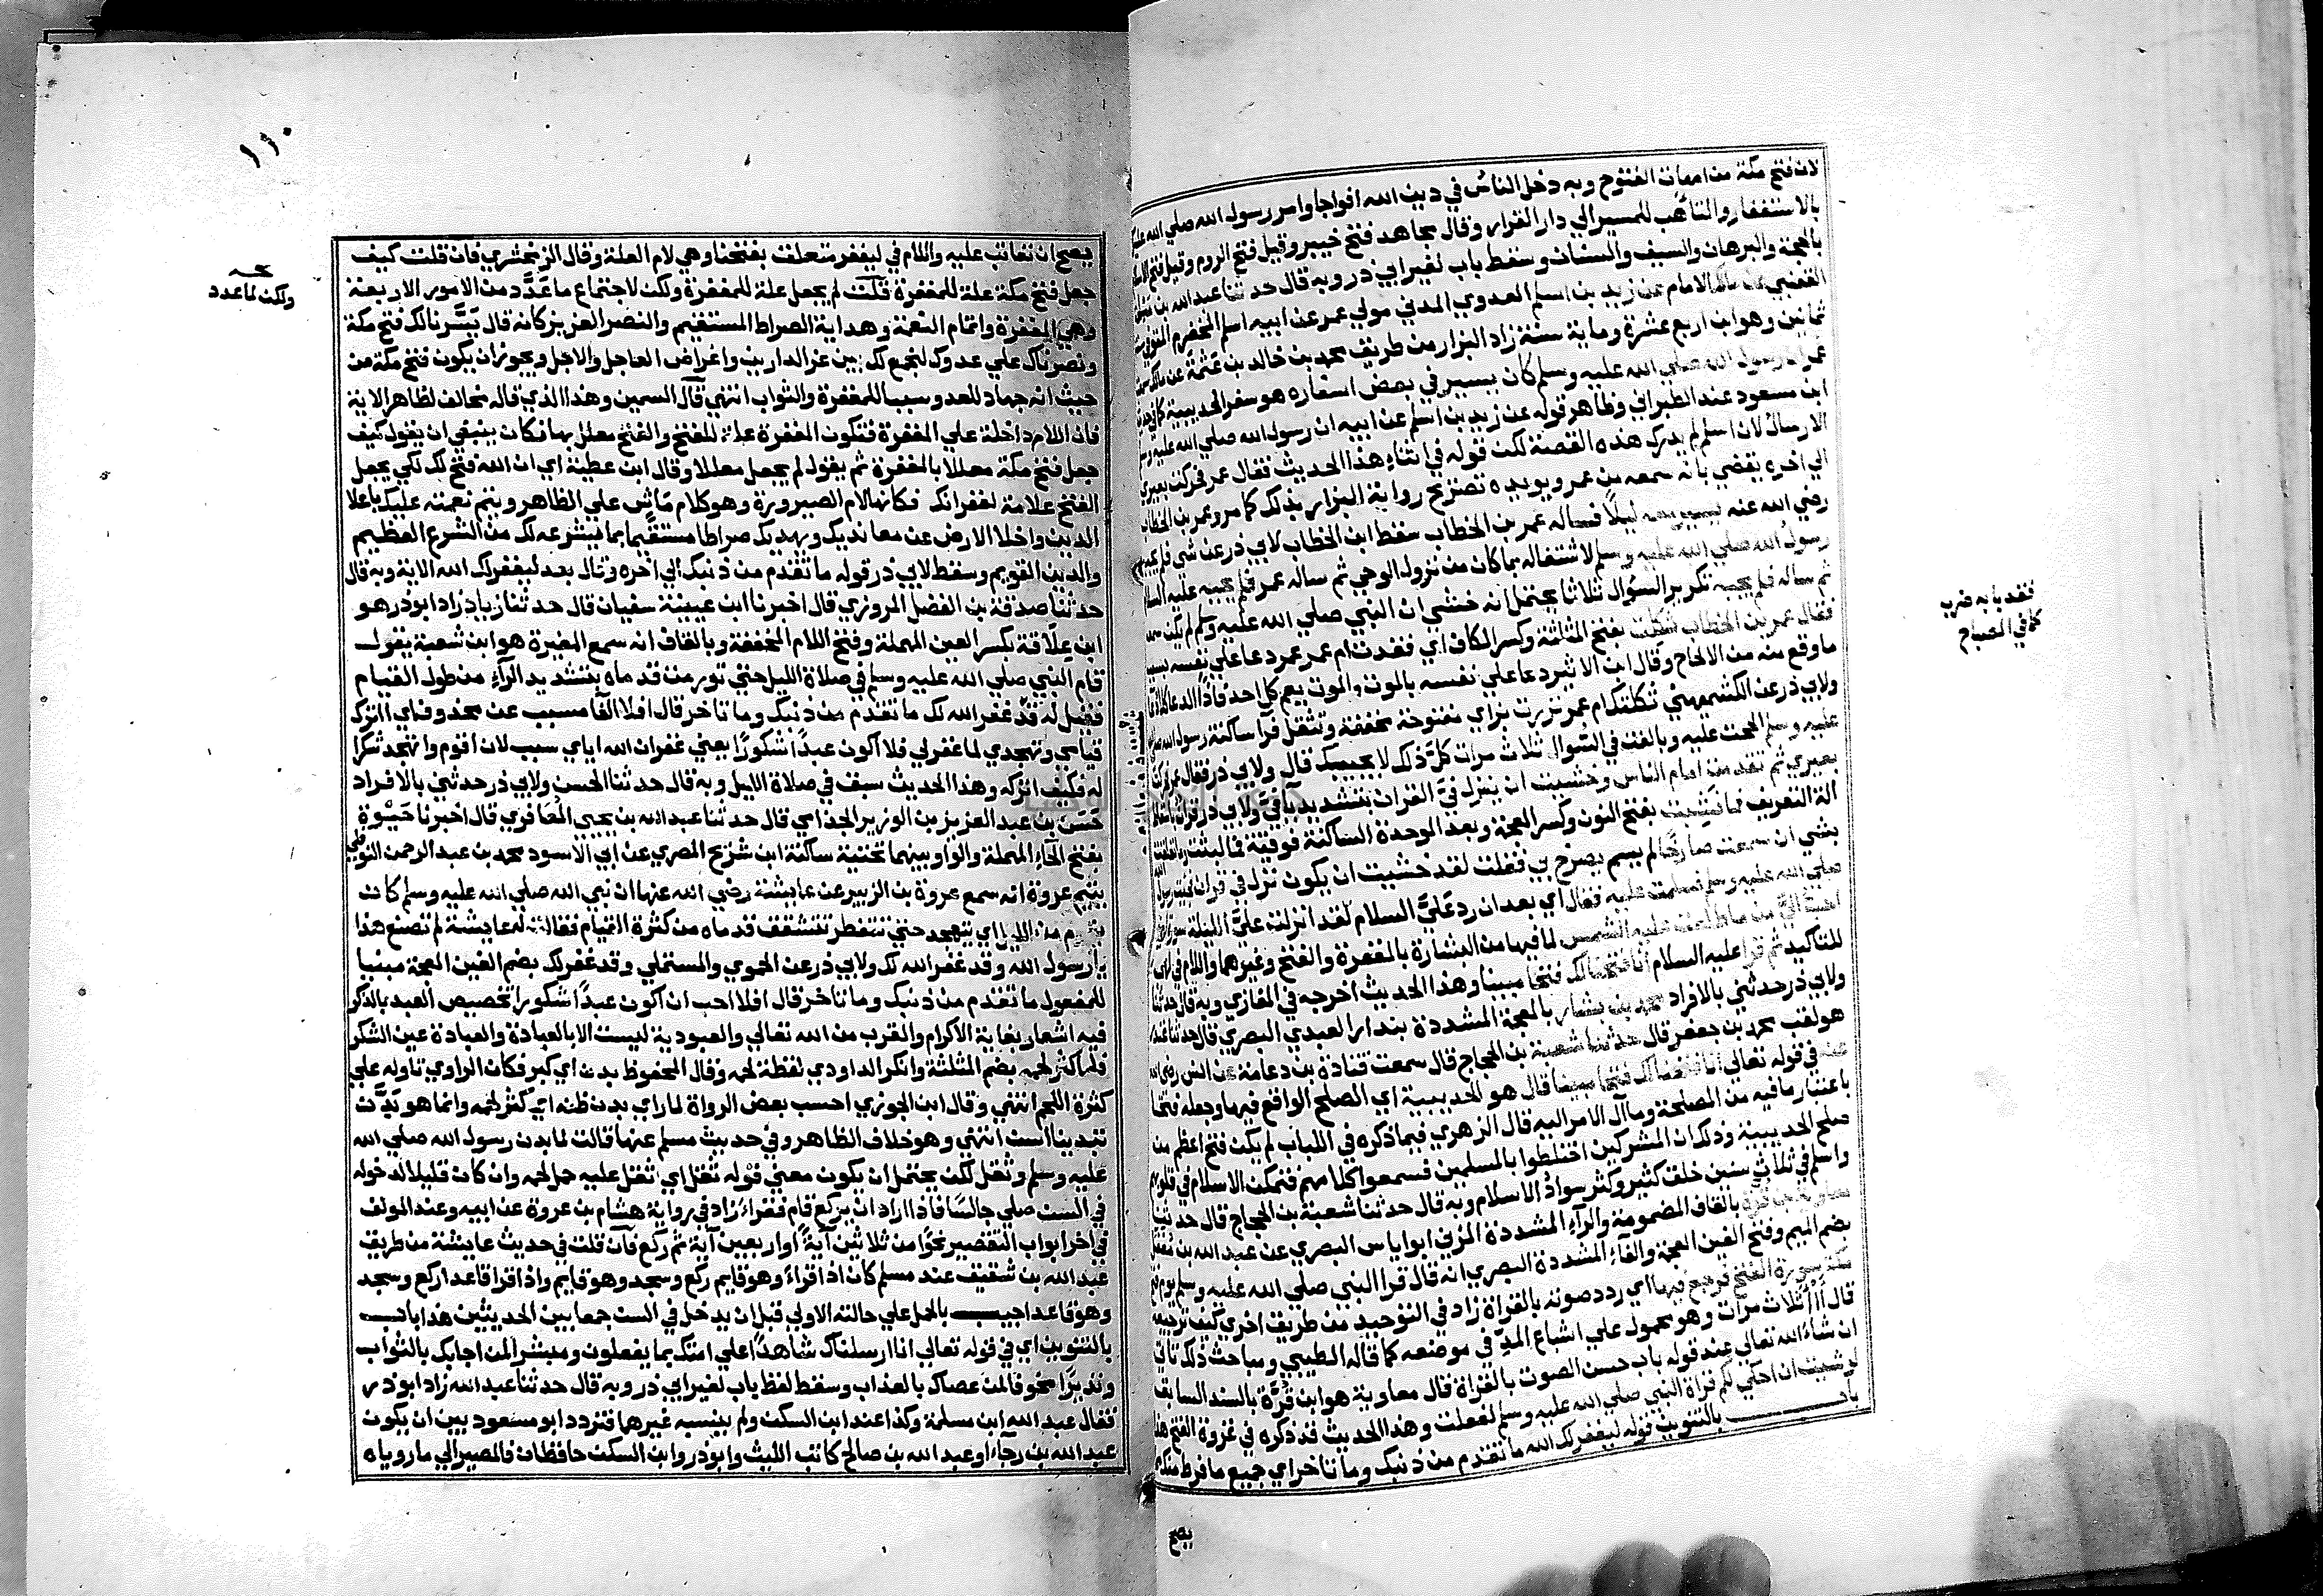 لان فتح مكة من امهات الفتوح وبه دخل الناس في دين الله افواجا وامر رسول الله صلي الله
بالاستغفار والتاهب للمسير الي دار القرار وقال مجاهد فتح خيبر وقيل فتح الروم وقيل فتح
بالحجة والبرهان والسيف والسنان وسقط باب لغير ابي ذر وبه قال حدثنا عبد الله بن
القعنبي عن مالك الامام عن زيد بن اسلم العدوي المدني مولي عمر عن ابيه اسلم المخضرم المتوفي
ثمانين وهو ابن اربع عشرة وماية سنة زاد البزار من طريق محمد بن خالد بن عثمة عن مالك
عمر ان رسول الله صلي الله عليه وسلم كان يسير في بعض اسفاره هو سفر الحديبية كما في حديث
ابن مسعود عند الطبراني وظاهر قوله عن زيد بن اسلم عن ابيه ان رسول الله صلي الله عليه وسلم
الارسال لان اسلم لم يدرك هذه القصة لكن قوله في اثناء هذا الحديث فقال عمر فحركت بعيري
الي اخره يقضي بانه سمعه من عمر ويويده تصريح رواية البزار بذلك كما مر وعمر بن الخطاب
رضي الله عنه يسير معه ليلاً فساله عمر بن الخطاب سقط ابن الخطاب لابي ذر عن شي فلم يجبه
رسول الله صلي الله عليه وسلم لاشتغاله بما كان من نزول الوحي ثم ساله عمر فلم يجبه عليه السلام
ثم ساله فلم يجبه تكرير السؤال ثلاثا يحتمل انه خشي ان النبي صلي الله عليه وسلم لم يكن سمعه
فقال عمر بن الخطاب ثكلت بفتح المثلثة وكسر الكاف اي فقدت ام عمر عمر دعا علي نفسه بسبب
ما وقع منه من الالحاح وقال ابن الاثير دعا علي نفسه بالموت والموت يعم كل احد فاذا الدعا كلا دعا
ولابي ذر عن الكشميهني ثكلتك ام عمر نزرت بزاي مفتوحة مخففة وتثقل فرا ساكنة رسول الله صلي الله
عليه وسلم الححت عليه وبالغت في السوال ثلاث مرات كل ذلك لا يجيبك قال ولابي ذر فقال عمر فحركت
بعيري ثم تقدمت امام الناس وخشيت ان ينزل فيّ القران بتشديد ياء فيّ ولابي ذر قران باسقاط
الة التعريف فما نشبت بفتح النون وكسر المعجمة وبعد الموحدة الساكنة فوقية فما لبثت وما تعلقت
بشي ان سمعت صارخا لم يسم يصرخ بي فقلت لقد خشيت ان يكون نزل في قران فجيت رسول الله
صلي الله عليه وسلم فسلمت عليه فقال اي بعد ان رد عليّ السلام لقد انزلت عليّ الليلة سورة لهي
احب اليّ مما طلعت عليه الشمس لما فيها من البشارة بالمغفرة والفتح وغيرهما واللام في لهي
للتاكيد ثم قرا عليه السلام انا فتحنا لك فتحا مبينا وهذا الحديث اخرجه في المغازي وبه قال حدثنا
ولابي ذر حدثني بالافراد محمد بن بشار بالمعجمة المشددة بندار العبدي البصري قال حدثنا غندر
هو لقب محمد بن جعفر قال حدثنا شعبة بن الحجاج قال سمعت قتادة بن دعامة عن انس رضي الله
عنه في قوله تعالي انا فتحنا لك فتحا مبينا قال هو الحديبية اي الصلح الواقع فيها وجعله فتحا
باعتبار ما فيه من المصلحة ومآل الامر اليه قال الزهري فيما ذكره في اللباب لم يكن فتح اعظم من
صلح الحديبية وذلك ان المشركين اختلطوا بالمسلمين فسمعوا كلامهم فتمكن الاسلام في قلوبهم
واسلم في ثلاث سنين خلق كثير وكثر سواد الاسلام وبه قال حدثنا شعبة بن الحجاج قال حدثنا
معاوية بن قرة بالقاف المضمومة والراء المشددة المزني ابو اياس البصري عن عبد الله بن مغفل
بضم الميم وفتح الغين المعجمة والفاء المشددة البصري انه قال قرا النبي صلي الله عليه وسلم يوم فتح
مكة سورة الفتح فرجع فيها اي ردد صوته بالقراة زاد في التوحيد من طريق اخري كيف ترجيعه
قال آ آ آ ثلاث مرات وهو محمول علي اشباع المد في موضعه كما قاله الطيبي ومباحث ذلك تاتي
ان شاء الله تعالي عند قوله باب حسن الصوت بالقراة قال معاوية هو ابن قرة بالسند السابق
لو شيت ان احكي لكم قراة النبي صلي الله عليه وسلم لفعلت وهذا الحديث قد ذكره في غزوة الفتح هذا
باب بالتنوين قوله ليغفر لك الله ما تقدم من ذنبك وما تاخر اي جميع ما فرط منك مما
يصح
فقد بابه ضرب
كما في المصباح
١٢٠
يصح ان تعاتب عليه واللام في ليغفر متعلقة بفتحنا وهي لام العلة وقال الزمخشري فان قلت كيف
جعل فتح مكة علة للمغفرة قلت لم يجعل علة للمغفرة ولكن لاجتماع ما عدد من الامور الاربعة
وهي المغفرة واتمام النعمة وهداية الصراط المستقيم والنصر العزيز كانه قال يسرنا لك فتح مكة
ونصرناك علي عدوك لنجمع لك بين عز الدارين واغراض العاجل والاجل ويجوز ان يكون فتح مكة من
حيث انه جهاد للعدو سببا للمغفرة والثواب انتهي قال السمين وهذا الذي قاله مخالف لظاهر الاية
فان اللام داخلة علي المغفرة فتكون المغفرة علة للفتح والفتح معلل بها فكان ينبغي ان يقول كيف
جعل فتح مكة معللا بالمغفرة ثم يقول لم يجعل معللا وقال ابن عطية اي ان الله فتح لك لكي يجعل
الفتح علامة لغفرانك فكانها لام الصيرورة وهو كلام ماش علي الظاهر ويتم نعمته عليك باعلا
الدين واخلا الارض عن معانديك ويهديك صراطا مستقيما بما يشرعه لك من الشرع العظيم
والدين القويم وسقط لابي ذر قوله ما تقدم من ذنبك الي اخره وقال بعد ليغفر لك الله الاية وبه قال
حدثنا صدقة بن الفضل المروزي قال اخبرنا ابن عيينة سفيان قال حدثنا زياد زاد ابو ذر هو
ابن علاقة بكسر العين المهملة وفتح اللام المخففة وبالقاف انه سمع المغيرة هو ابن شعبة يقول
قام النبي صلي الله عليه وسلم في صلاة الليل حتي تورمت قدماه بتشديد الراء من طول القيام
فقيل له قد غفر الله لك ما تقدم من ذنبك وما تاخر قال افلا الفا مسبب عن محذوف اي ااترك
قيامي وتهجدي لما غفر لي فلا اكون عبداً شكوراً يعني غفران الله اياي سبب لان اقوم واتهجد شكرا
له فكيف اتركه وهذا الحديث سبق في صلاة الليل وبه قال حدثنا الحسن ولابي ذر حدثني بالافراد
حسن بن عبد العزيز بن الوزير الجذامي قال حدثنا عبد الله بن يحيي المعافري قال اخبرنا حيوة
بفتح الحاء المهملة والواو بينهما تحتية ساكنة ابن شريح المصري عن ابي الاسود محمد بن عبد الرحمن النوفلي
يتيم عروة انه سمع عروة بن الزبير عن عايشة رضي الله عنها ان نبي الله صلي الله عليه وسلم كان
يقوم من الليل اي يتهجد حتي تتفطر تتشقق قدماه من كثرة القيام فقالت له عايشة لم تصنع هذا
يا رسول الله وقد غفر الله لك ولابي ذر عن الحموي والمستملي وقد غفر لك بضم الغين المعجمة مبنيا
للمفعول ما تقدم من ذنبك وما تاخر قال افلا احب ان اكون عبداً شكورا تخصيص العبد بالذكر
فيه اشعار بغاية الاكرام والقرب من الله تعالي والعبودية ليست الا بالعبادة والعبادة عين الشكر
فلما كثر لحمه بضم المثلثة وانكر الداودي لفظة لحمه وقال المحفوظ بدن اي كبر فكان الراوي تاوله علي
كثرة اللحم انتهي وقال ابن الجوزي احسب بعض الرواة لما راي بدن ظنه اي كثر لحمه وانما هو بدّن
تبدينا اسن انتهي وهو خلاف الظاهر وفي حديث مسلم عنها قالت لما بدن رسول الله صلي الله
عليه وسلم وثقل لكن يحتمل ان يكون معني قوله ثقل اي ثقل عليه حمل لحمه وان كان قليلا لدخوله
في السن صلي جالسا فاذا اراد ان يركع قام فقراء زاد في رواية هشام بن عروة عن ابيه وعند المولف
في اخر ابواب التقصير نحوا من ثلاثين آية او اربعين آية ثم ركع فان قلت في حديث عايشة من طريق
عبد الله بن شقيق عند مسلم كان اذا قراء وهو قايم ركع وسجد وهو قايم واذا قرا قاعدا ركع وسجد
وهو قاعد اجيب بالحمل علي حالته الاولي قبل ان يدخل في السن جمعا بين الحديثين هذا باب
بالتنوين اي في قوله تعالي انا ارسلناك شاهداً علي امتك بما يفعلون ومبشرا لمن اجابك بالثواب
ونذيرا مخوفا لمن عصاك بالعذاب وسقط لفظ باب لغير ابي ذر وبه قال حدثنا عبد الله زاد ابو ذر
فقال عبد الله ابن مسلمة وكذا عند ابن السكن ولم ينسبه غيرها فتردد ابو مسعود بين ان يكون
عبد الله بن رجاء او عبد الله بن صالح كاتب الليث وابو ذر وابن السكن حافظان فالمصير الي ما روياه
ولكن لما عدد